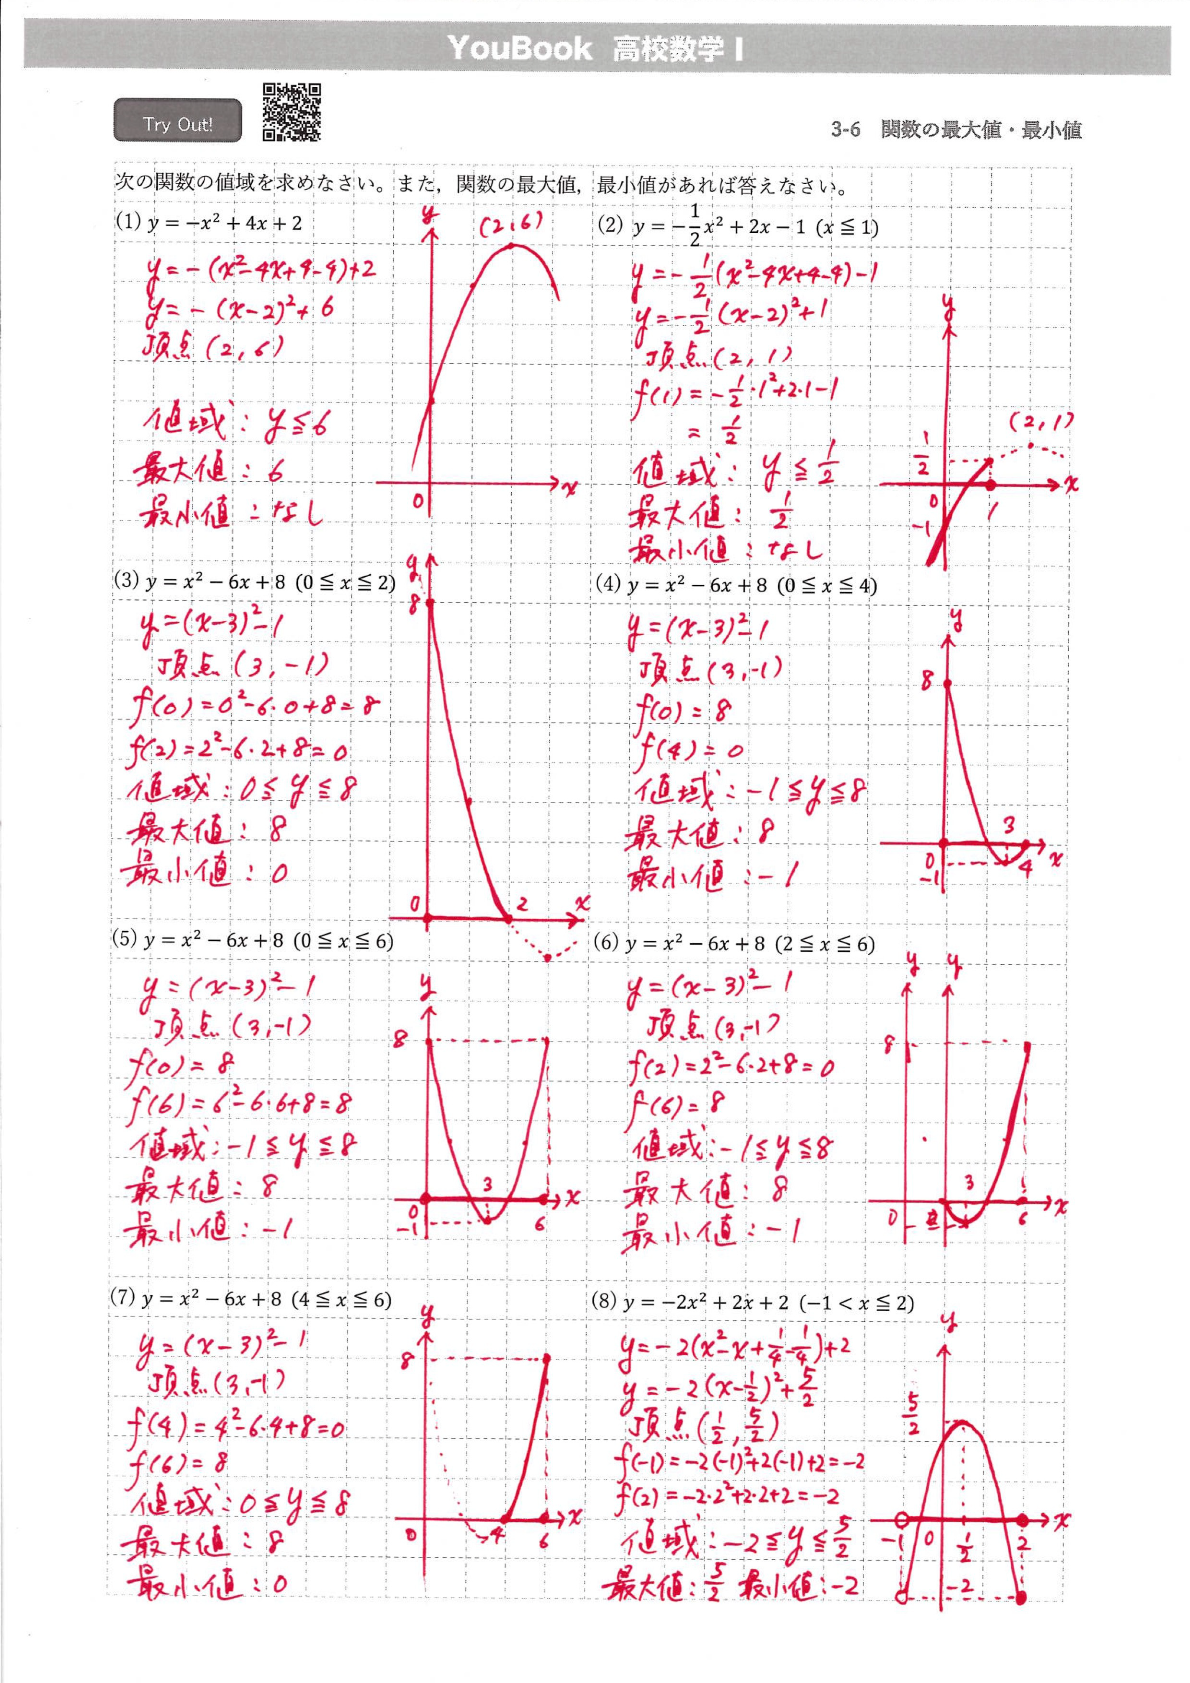 YouBook 高校数学 I
Try Out!
3-6 関数の最大値・最小値
次の関数の値域を求めなさい。また，関数の最大値，最小値があれば答えなさい。
(1) y = −x² + 4x + 2
y = −(x²−4x+4−4)+2
y = −(x−2)²+6
頂点(2, 6)
値域：y≦6
最大値：6
最小値：なし
y
(2,6)
0
x
(2) y = −1/2x² + 2x − 1 (x ≦ 1)
y = −1/2(x²−4x+4−4)−1
y = −1/2(x−2)²+1
頂点(2, 1)
f(1) = −1/2・1²+2・1−1
= 1/2
値域：y ≦ 1/2
最大値：1/2
最小値：なし
y
(2,1)
1/2
0
1
x
−1
(3) y = x² − 6x + 8 (0 ≦ x ≦ 2)
y = (x−3)²−1
頂点(3, −1)
f(0) = 0²−6・0+8 = 8
f(2) = 2²−6・2+8 = 0
値域：0≦y≦8
最大値：8
最小値：0
y
8
0
2
x
(4) y = x² − 6x + 8 (0 ≦ x ≦ 4)
y = (x−3)²−1
頂点(3, −1)
f(0) = 8
f(4) = 0
値域：−1≦y≦8
最大値：8
最小値：−1
y
8
3
0
4
x
−1
(5) y = x² − 6x + 8 (0 ≦ x ≦ 6)
y = (x−3)²−1
頂点(3, −1)
f(0) = 8
f(6) = 6²−6・6+8 = 8
値域：−1≦y≦8
最大値：8
最小値：−1
y
8
3
0
6
x
−1
(6) y = x² − 6x + 8 (2 ≦ x ≦ 6)
y = (x−3)²−1
頂点(3, −1)
f(2) = 2²−6・2+8 = 0
f(6) = 8
値域：−1≦y≦8
最大値：8
最小値：−1
y y
8
3
0
2
6
x
(7) y = x² − 6x + 8 (4 ≦ x ≦ 6)
y = (x−3)²−1
頂点(3, −1)
f(4) = 4²−6・4+8 = 0
f(6) = 8
値域：0≦y≦8
最大値：8
最小値：0
y
8
0
4
6
x
(8) y = −2x² + 2x + 2 (−1 < x ≦ 2)
y = −2(x²−x+1/4−1/4)+2
y = −2(x−1/2)²+5/2
頂点(1/2, 5/2)
f(−1) = −2(−1)²+2(−1)+2 = −2
f(2) = −2・2²+2・2+2 = −2
値域：−2≦y≦5/2
最大値：5/2 最小値：−2
y
5/2
−1
0
1/2
2
x
−2